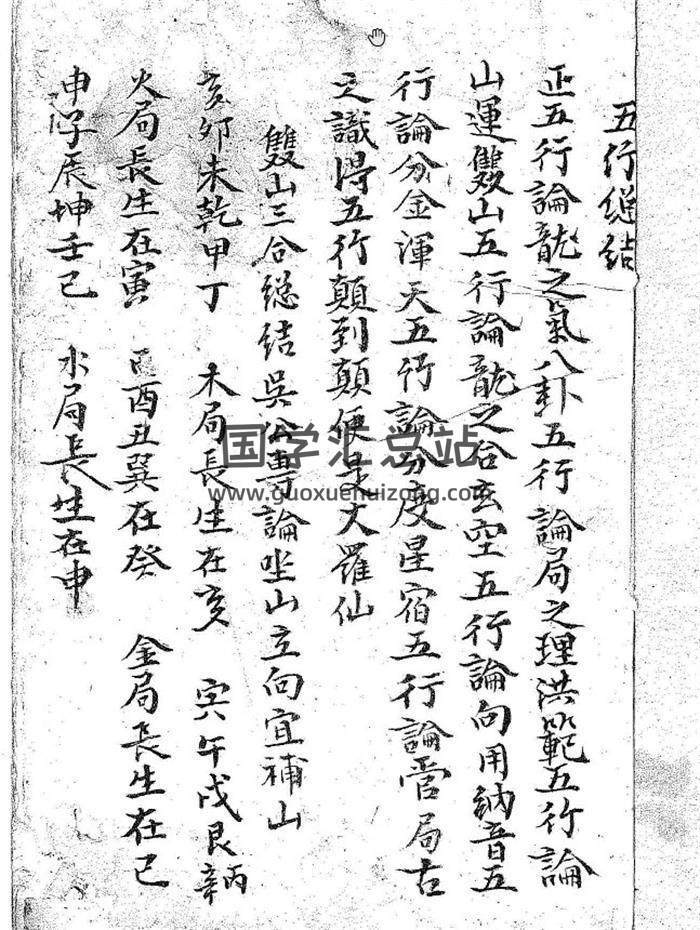 五行總結
正五行論龍之氣八卦五行論局之理洪範五行論
山運雙山五行論龍之合玄空五行論向用納音五
行論分金渾天五行論分度星宿五行論營局古
之識得五行顛到顛便是大羅仙
雙山三合總結吳公專論坐山立向宜補山
亥卯未乾甲丁 木局長生在亥 寅午戌艮辛丙
火局長生在寅 巳酉丑巽在癸 金局長生在巳
申子辰坤壬乙 水局長生在申
国学汇总站
www.guoxuehuizong.com